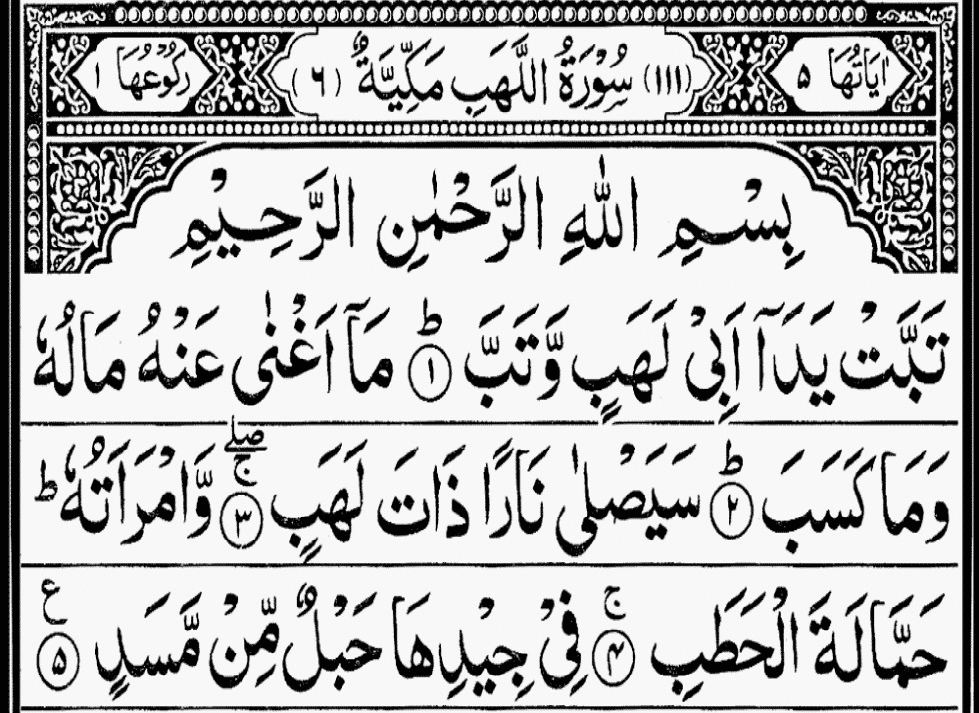 اٰیَاتُهَا ۵ (۱۱۱) سُوْرَةُ اللَّهَبِ مَكِّيَّةٌ (٦) رُكُوْعُهَا ۱
بِسْمِ اللّٰهِ الرَّحْمٰنِ الرَّحِيْمِ
تَبَّتْ يَدَآ اَبِيْ لَهَبٍ وَّتَبَّ ؕ﴿۱﴾ مَاۤ اَغْنٰى عَنْهُ مَالُهٗ
وَمَا كَسَبَ ؕ﴿۲﴾ سَيَصْلٰى نَارًا ذَاتَ لَهَبٍ ۖۚ﴿۳﴾ وَّامْرَاَتُهٗ ؕ
حَمَّالَةَ الْحَطَبِ ۚ﴿۴﴾ فِيْ جِيْدِهَا حَبْلٌ مِّنْ مَّسَدٍ ﴿۵﴾ ع